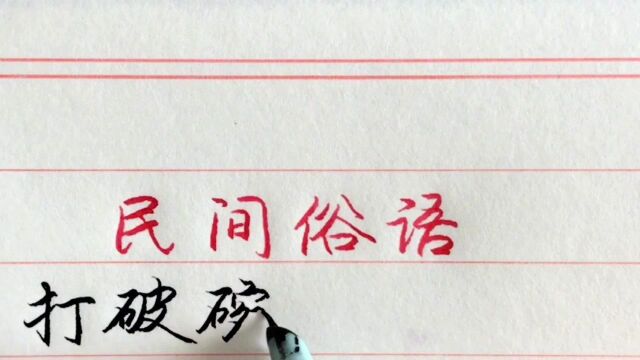 民间俗语
打破碗